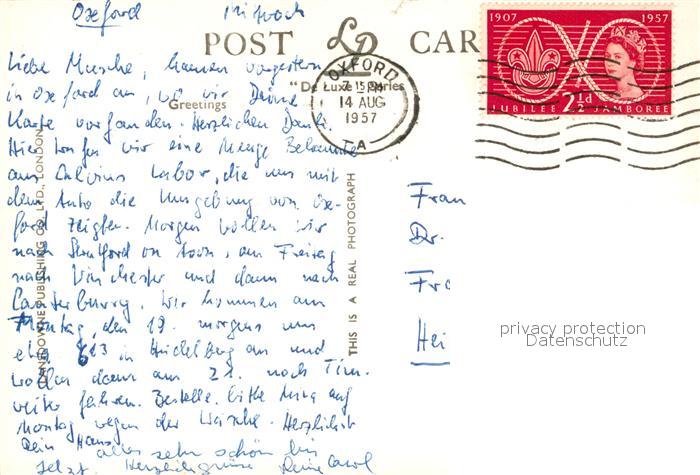 Oxeford Mittwoch
POST CARD
LP
"De Luxe" Series
Greetings
LANSDOWNE PUBLISHING CO., LTD., LONDON.
THIS IS A REAL PHOTOGRAPH
OXFORD
7 15 PM
14 AUG
1957
A
1907 1957
JUBILEE 2½d JAMBOREE
Liebe Musche, kamen vorgestern
in Oxeford an, wo wir Deine
Karte vorfanden. Herzlichen Dank.
Hier trafen wir eine Menge Bekannte
aus Calvins Labor, die uns mit
dem Auto die Umgebung von Oxe-
ford zeigten. Morgen wollen wir
nach Stratford on Avon, am Freitag
nach Winchester und dann nach
Canterbury. Wir kommen am
Montag, den 19. morgens um
in Heidelberg an und
wollen dann am 21. nach
weiter fahren. Bestelle bitte auf
Montag wegen der Wäsche. Herzlichst
Dein Hans
alles sehr schön bis
jetzt. Herzlichsgrüsse Deine Carol
Frau
Dr.
Fr
Hei
privacy protection
Datenschutz